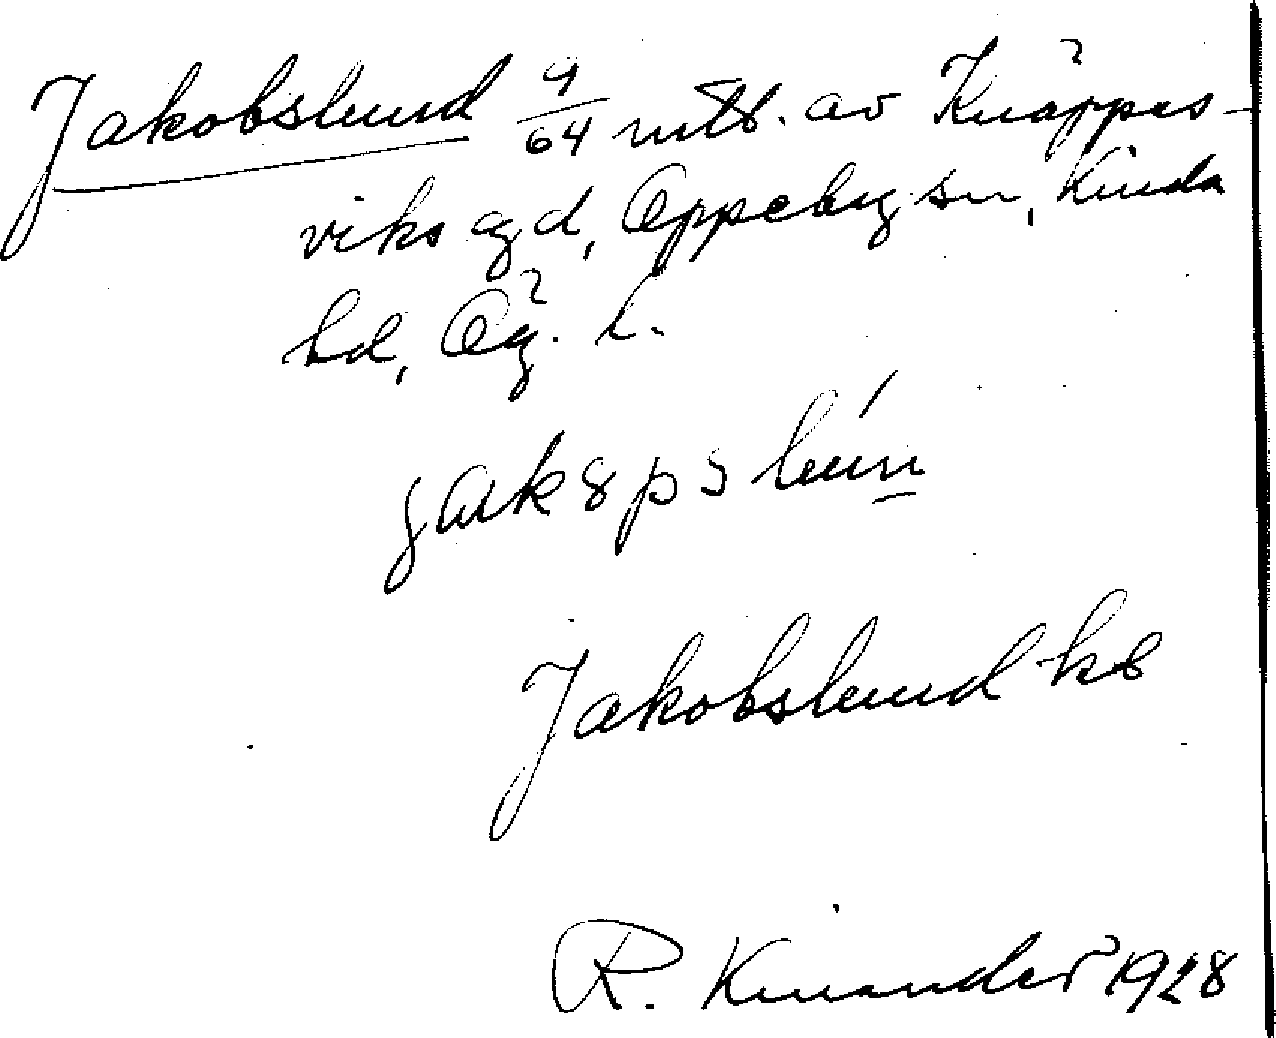 Jakobslund 9/64 mtl. av Knäppes-
viks gd, Oppeby sn, Kinda
hd, Ög. l.
Jakobslund kb
R. Kinander 1928